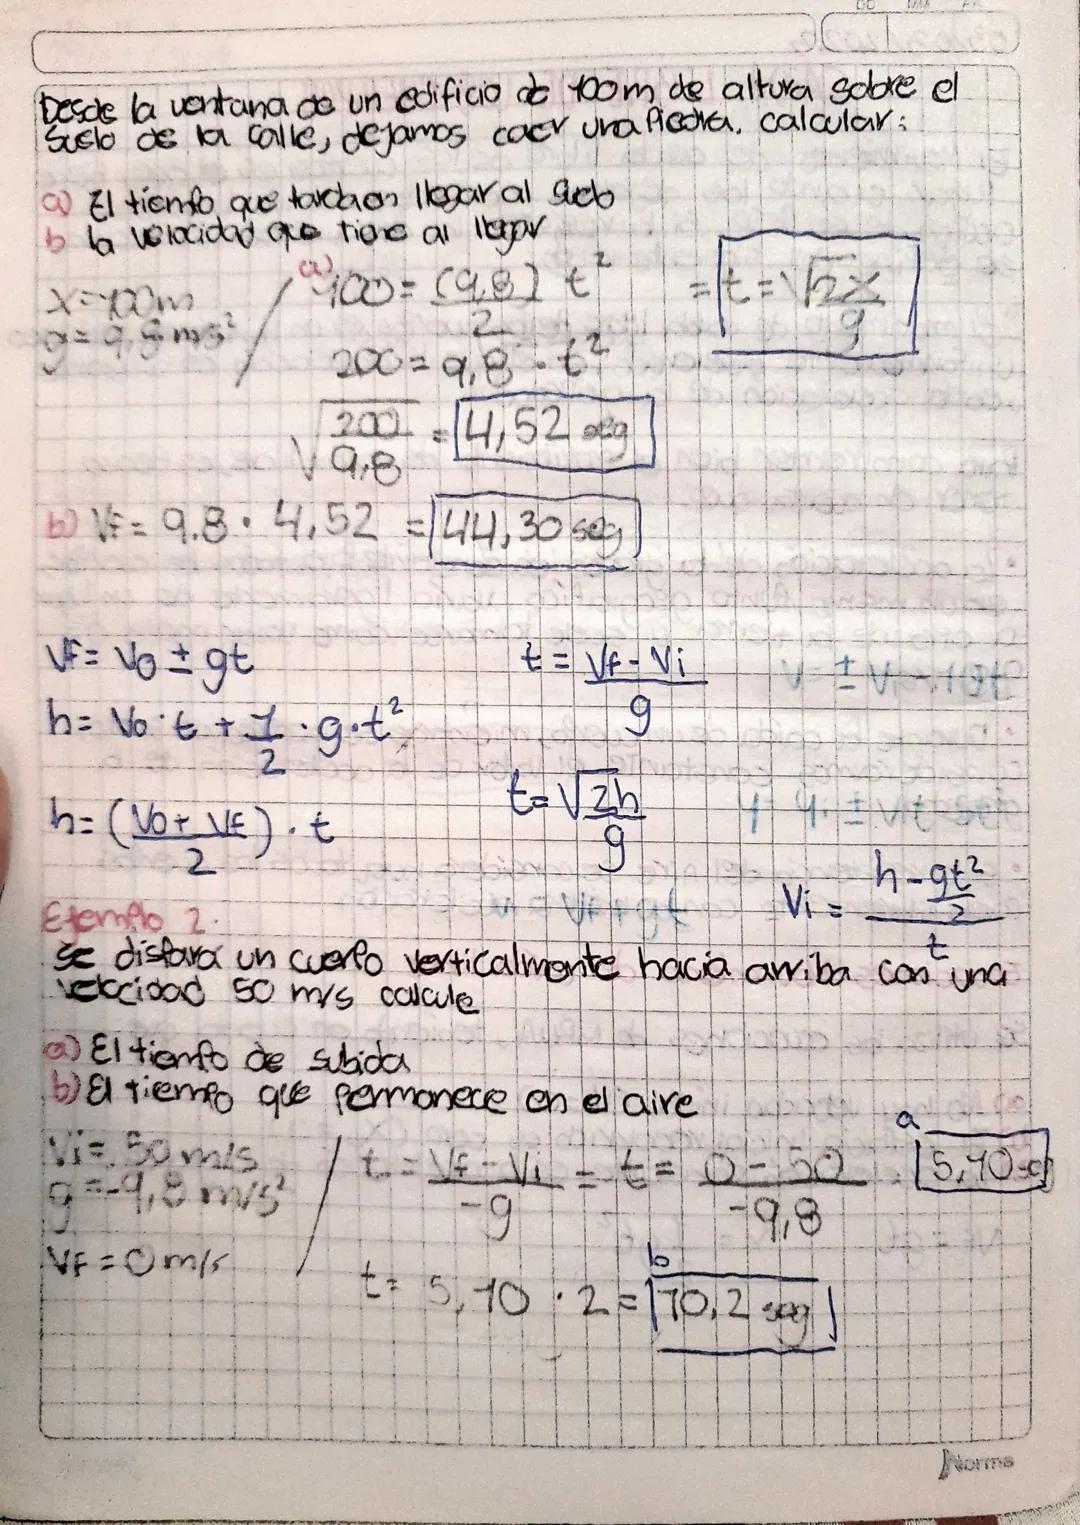 Desde la ventana de un edificio de 100m de altura sobre el
suelo de la calle, dejamos caer una Piedra. calcular:
a) El tiempo que tarda en llegar al suelo
b la velocidad que tiene al llegar
x=100m
g= 9,8 m/s²
a) 100= (9,8) t² / 2
= t=√2x/g
200= 9,8 · t²
√200/9,8 = 4,52 seg
b) Vf= 9.8 · 4,52 = 44,30 seg
Vf= Vo ± gt
t = Vf - Vi / g
h= Vo · t + 1/2 · g · t²
t= √2h/g
h= (Vo + Vf / 2) · t
Vi = h - gt²/2 / t
Ejemplo 2.
se dispara un cuerpo verticalmente hacia arriba con una
velocidad 50 m/s calcule
a) El tiempo de subida
b) El tiempo que permanece en el aire
Vi = 50 m/s
g =-9,8 m/s²
Vf = 0 m/s
t = Vf - Vi / -g = t = 0 - 50 / -9,8
a
5,10
b
t= 5,10 · 2 = 10,2 seg
Norma